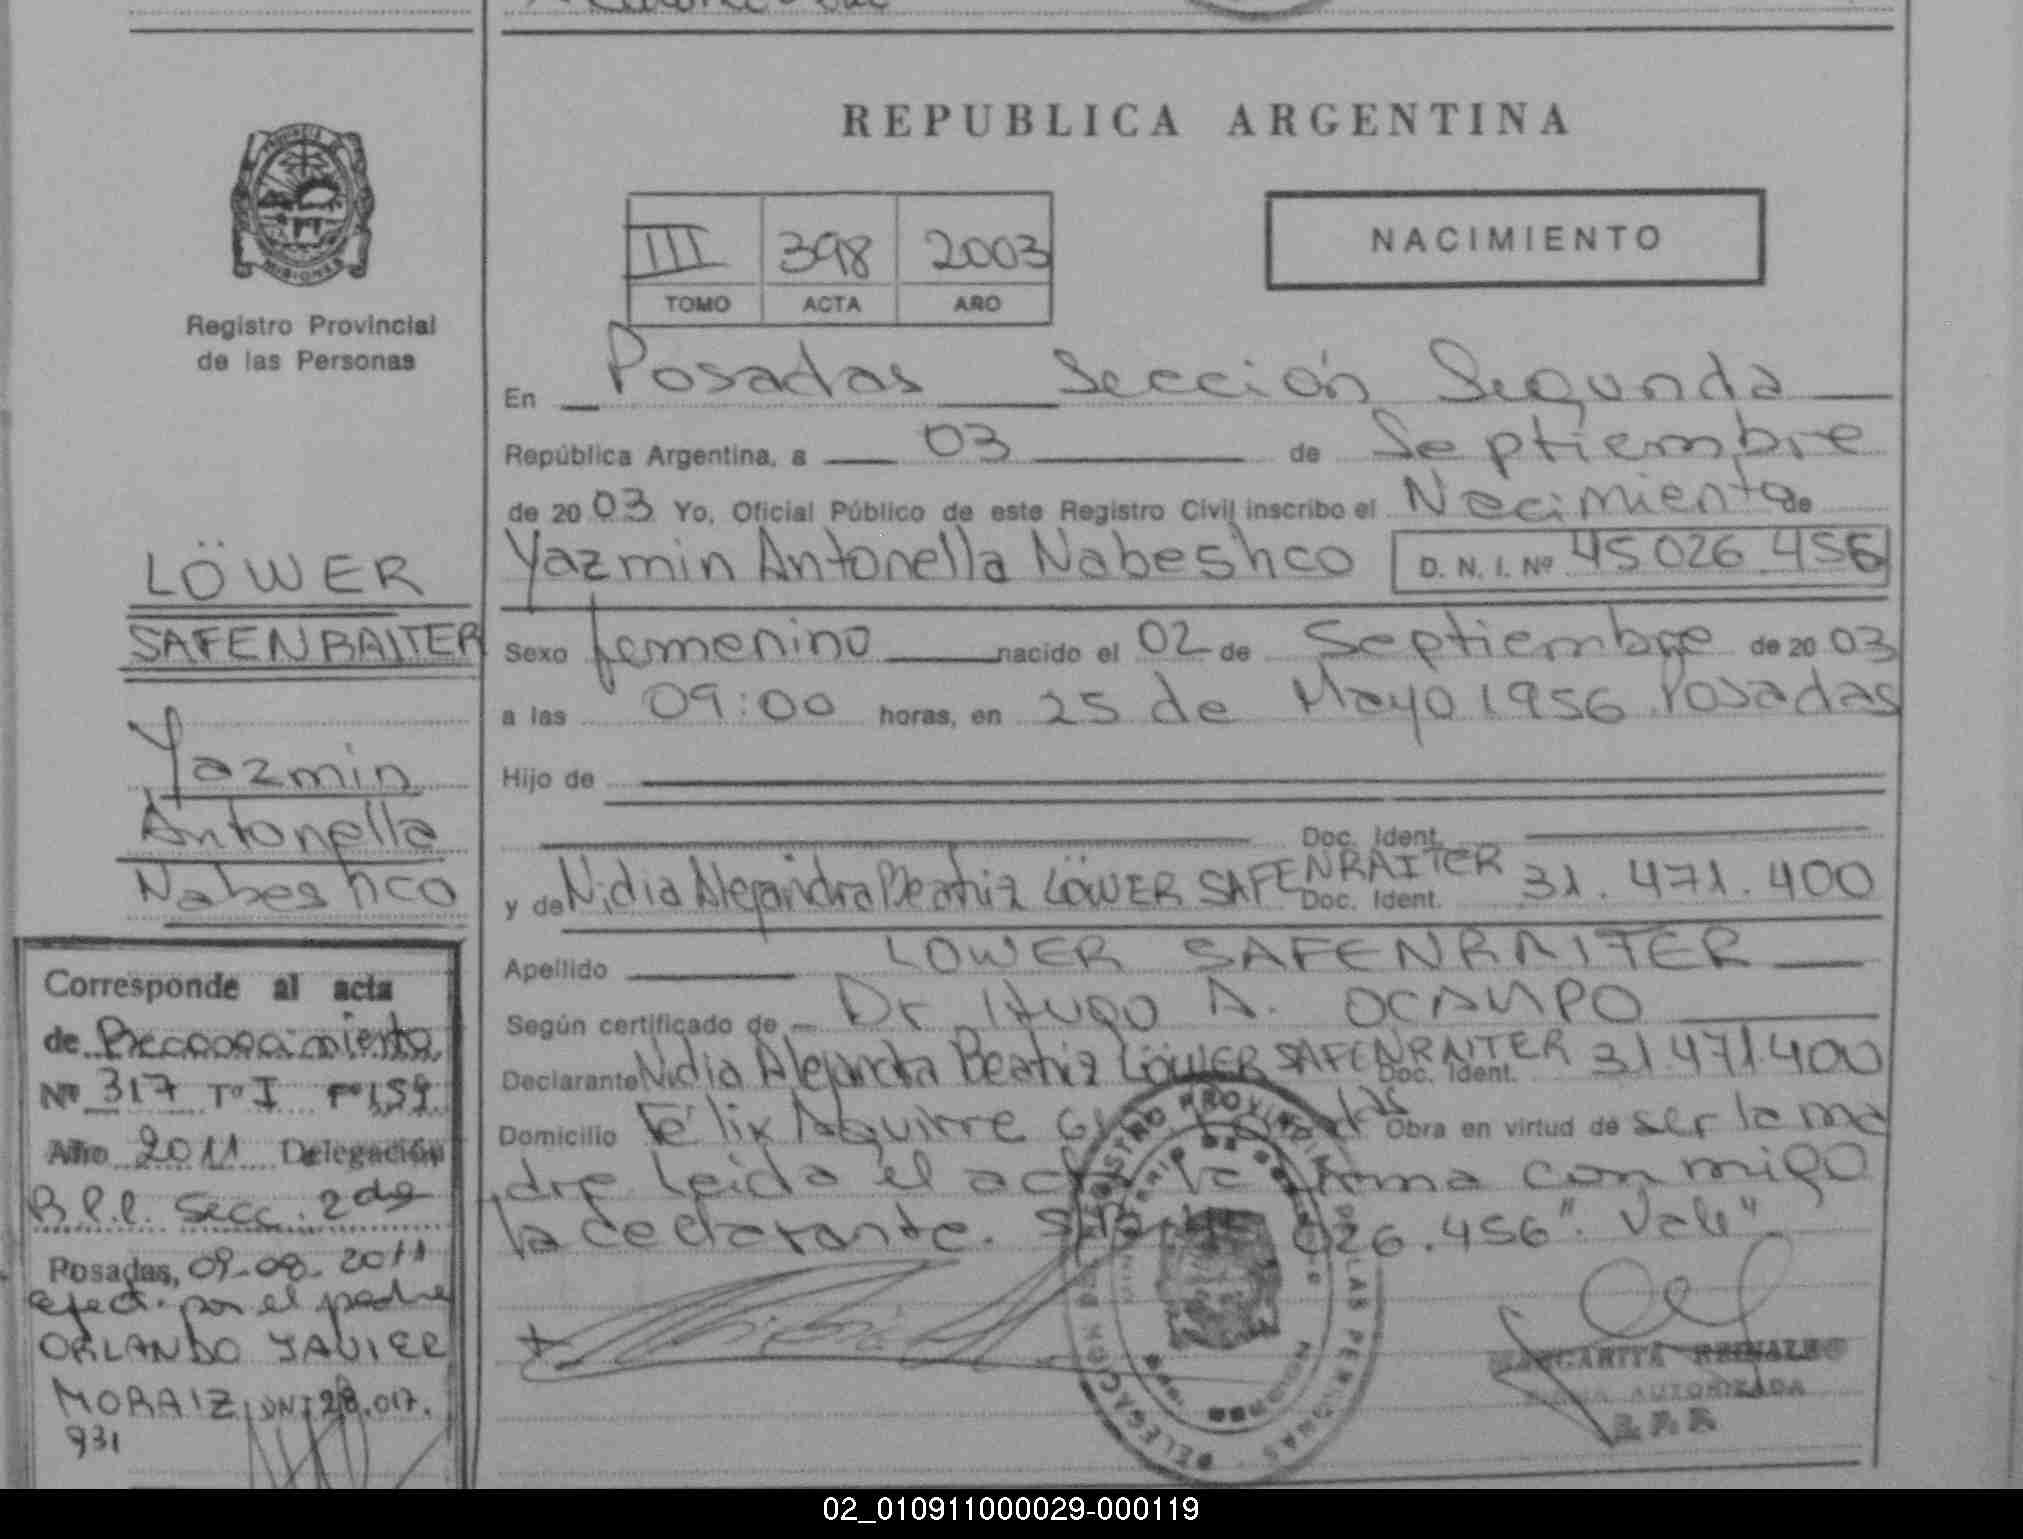 REPUBLICA ARGENTINA
PROVINCIA DE
MISIONES
Registro Provincial
de las Personas
III 398 2003
TOMO ACTA AÑO
NACIMIENTO
En Posadas Sección Segunda
República Argentina, a 03 de Septiembre
de 2003 Yo, Oficial Público de este Registro Civil inscribo el Nacimiento de
Yazmin Antonella Nabeshco D. N. I. Nº 45 026 456
Sexo femenino nacido el 02 de Septiembre de 2003
a las 09:00 horas, en 25 de Mayo 1956 Posadas
Hijo de
Doc. Ident.
y de Nidia Alejandra Beatriz LÖWER SAFENRAITER Doc. Ident. 31.471.400
Apellido LOWER SAFENRAITER
Según certificado de Dr Hugo A. OCAMPO
Declarante Nidia Alejandra Beatriz LÖWER SAFENRAITER Doc. Ident. 31.471.400
Domicilio Félix Aguirre Obra en virtud de ser la ma
dre Leida el acta la firma conmigo
la declarante. 026.456". Vale"
REGISTRO PROVINCIAL DE LAS PERSONAS
DELEGACION
MARGARITA REINALDO
FIRMA AUTORIZADA
R.P.P.
LÖWER
SAFENRAITER
Yazmin
Antonella
Nabeshco
Corresponde al acta
de Reconocimiento
Nº 317 Tº I Fº 159
Año 2011 Delegación
R.P.P. Secc. 2da
Posadas, 09-08-2011
efect. por el padre
ORLANDO JAVIER
MORAIZ DNI 28.017.
931
02_010911000029-000119